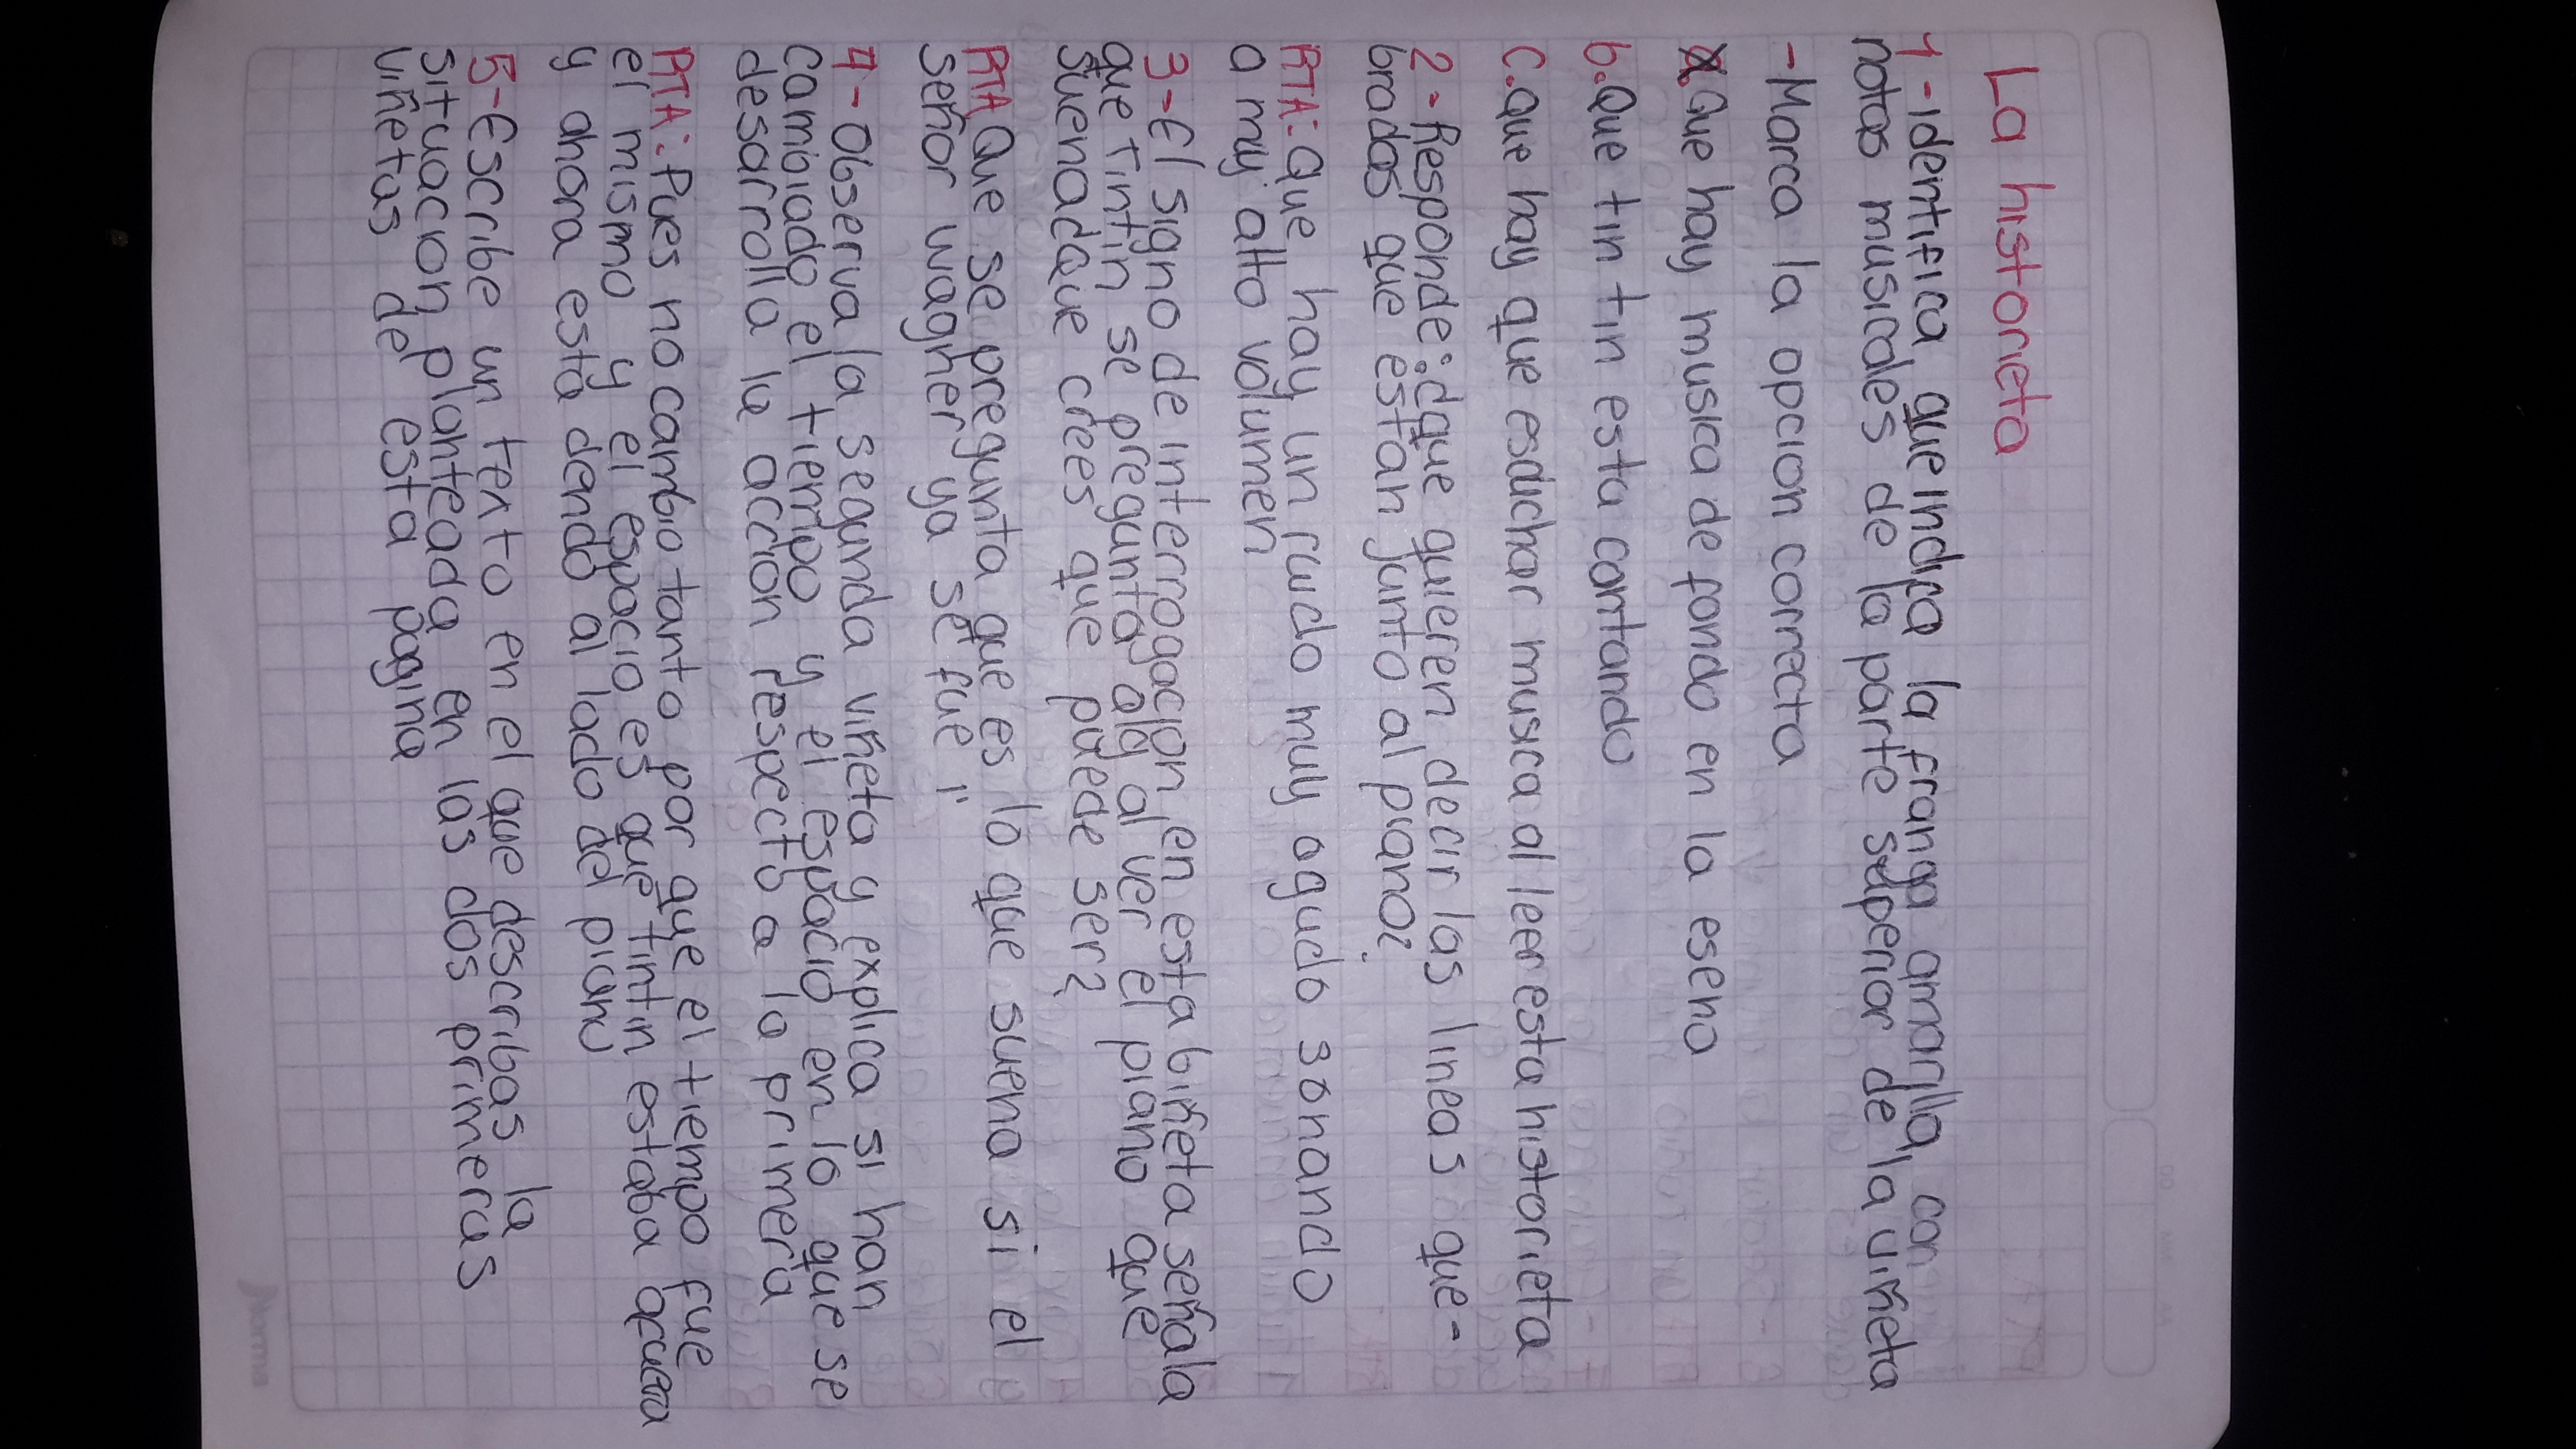 La historieta
1-identifica que indica la franga amarilla, con
notas musicales de la parte superior de la viñeta
-Marca la opcion correcta
a.Que hay musica de fondo en la esena
b.Que tin tin esta cantando
c.que hay que escuchar musica al leer esta historieta
2-Responde:¿que quieren decir las lineas que-
bradas que estan junto al piano?
RTA:Que hay un ruido muy agudo sonando
a muy alto volumen
3-El signo de interrogacion en esta biñeta señala
que tintin se pregunta algo al ver el piano que
suena¿que crees que puede ser?
RTA Que se pregunta que es lo que suena si el
señor wagner ya se fue"
4-Observa la segunda viñeta y explica si han
cambiado el tiempo y el espacio en lo que se
desarrolla la accion respecto a la primera
RTA:Pues no cambio tanto por que el tiempo fue
el mismo y el espacio es que tintin estaba acuera
y ahora esta dendo al lado del piano
5-Escribe un texto en el que describas la
situacion planteada en las dos primeras
viñetas de esta pagina
Norma